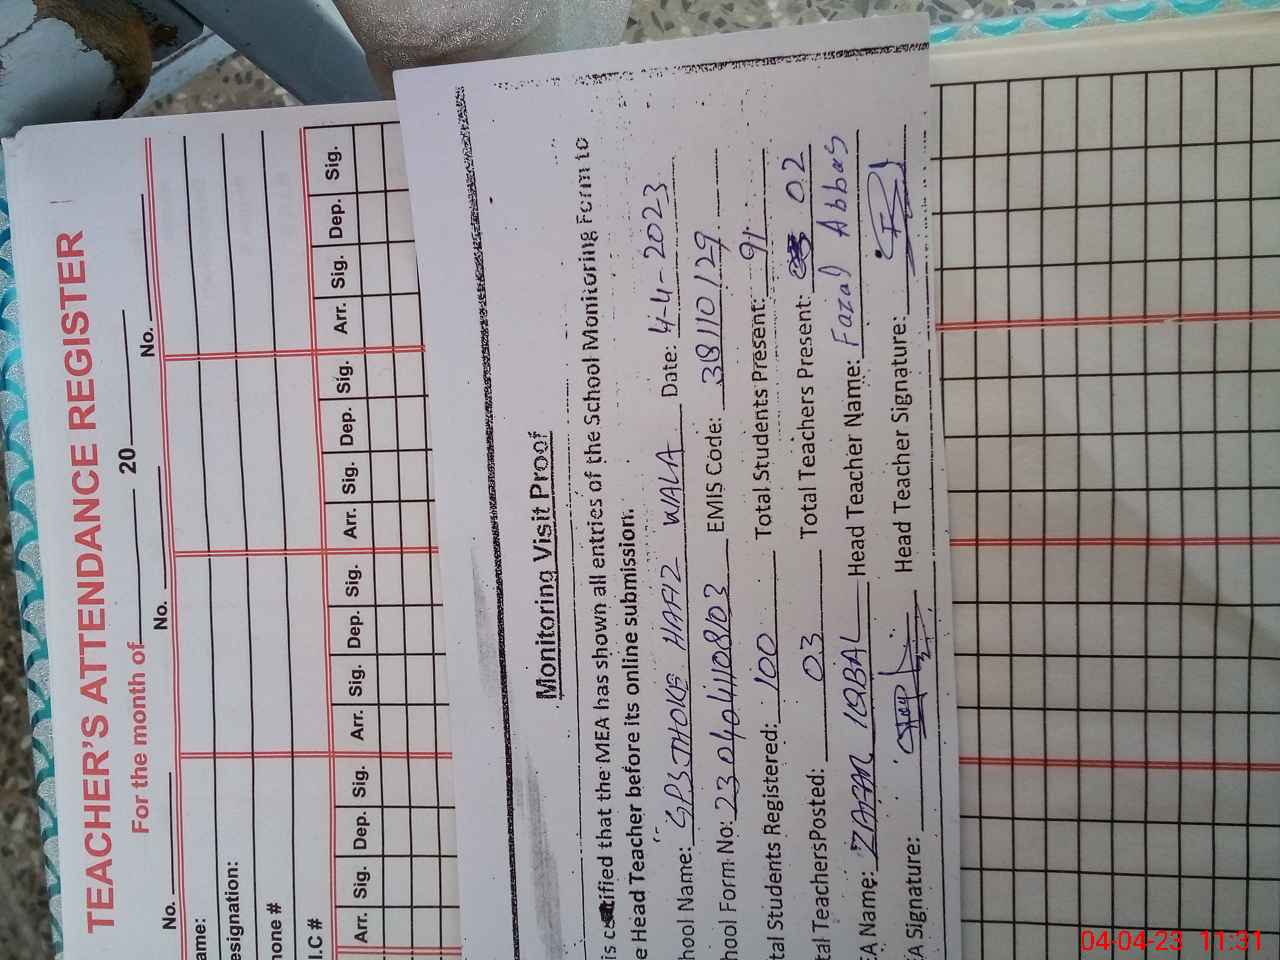 TEACHER'S ATTENDANCE REGISTER
For the month of 20
No. No. No.
ame:
esignation:
hone #
I.C #
Arr. Sig. Dep. Sig. Arr. Sig. Dep. Sig. Arr. Sig. Dep. Sig. Arr. Sig. Dep. Sig.
Monitoring Visit Proof
is certified that the MEA has shown all entries of the School Monitoring Form to
e Head Teacher before its online submission.
hool Name: GPS JHOKE HAFIZ WALA Date: 4-4-2023
hool Form No: 230404110803 EMIS Code: 38110129
tal Students Registered: 100 Total Students Present: 91
tal TeachersPosted: 03 Total Teachers Present: 02
EA Name: ZAFAR IQBAL Head Teacher Name: Fazal Abbas
EA Signature: Head Teacher Signature:
04-04-23 11:31